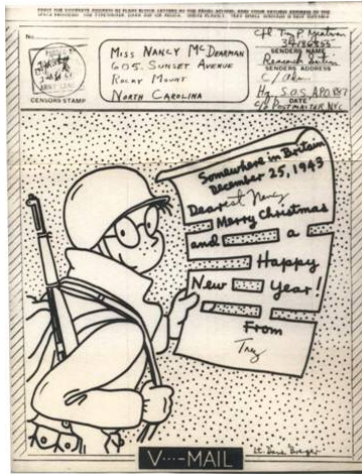 No.
CENSORS STAMP
MISS NANCY MCDEARMAN
605 SUNSET AVENUE
ROCKY MOUNT
NORTH CAROLINA
SENDERS NAME
SENDERS ADDRESS
DATE
C/O POSTMASTER NYC
Somewhere in Britain
December 25, 1943
Dearest Nancy
Merry Christmas
and a
Happy
New Year!
From
Trez
V···—MAIL
Lt. Dave Breger